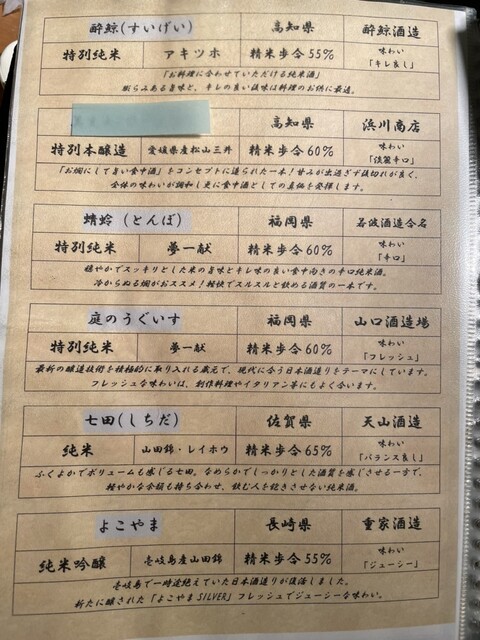 酔鯨(すいげい) 高知県 酔鯨酒造
特別純米 アキツホ 精米歩合55% 味わい「キレ良し」
「お料理に合わせていただける純米酒」
膨らみある旨味と、キレの良い後味は料理のお供に最適。
高知県 浜川商店
特別本醸造 愛媛県産松山三井 精米歩合60% 味わい「淡麗辛口」
「お燗にして旨い食中酒」をコンセプトに造られた一本!甘みが出過ぎず後切れが良く、
全体の味わいが調和し更に食中酒としての真価を発揮します。
蜻蛉(とんぼ) 福岡県 若波酒造合名
特別純米 夢一献 精米歩合60% 味わい「辛口」
穏やかでスッキリとした米の旨味とキレ味の良い食中向きの辛口純米酒。
冷からぬる燗がおススメ!軽快でスルスルと飲める酒質の一本です。
庭のうぐいす 福岡県 山口酒造場
特別純米 夢一献 精米歩合60% 味わい「フレッシュ」
最新の醸造技術を積極的に取り入れる蔵元で、現代に合う日本酒造りをテーマにしています。
フレッシュな味わいは、創作料理やイタリアン等にもよく合います。
七田(しちだ) 佐賀県 天山酒造
純米 山田錦・レイホウ 精米歩合65% 味わい「バランス良し」
ふくよかでボリュームも感じる七田。なめらかでしっかりとした酒質を感じさせる一方で、
軽やかな余韻も持ち合わせ、飲む人を飽きさせない純米酒。
よこやま 長崎県 重家酒造
純米吟醸 壱岐島産山田錦 精米歩合55% 味わい「ジューシー」
壱岐島で一時途絶えていた日本酒造りが復活しました。
新たに醸された「よこやまSILVER」フレッシュでジューシーな味わい。